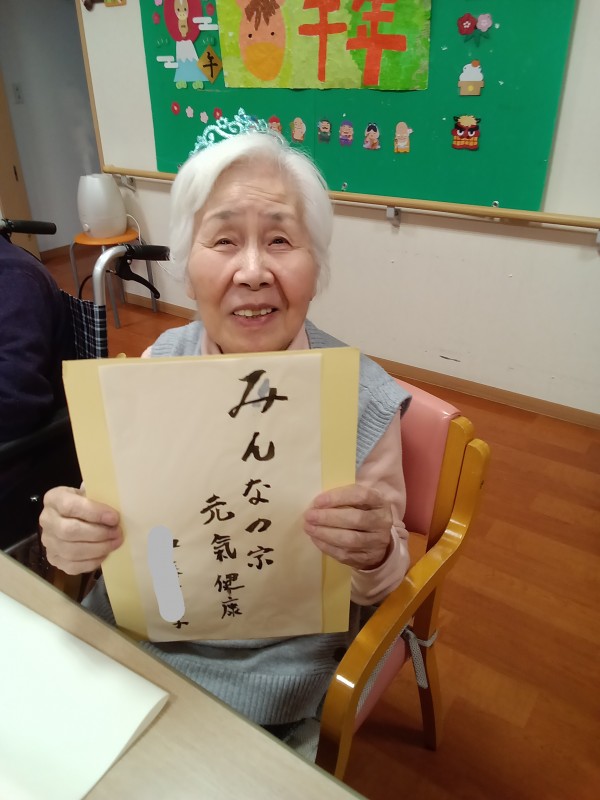 午年
午
みんなの宗
元氣健康
子